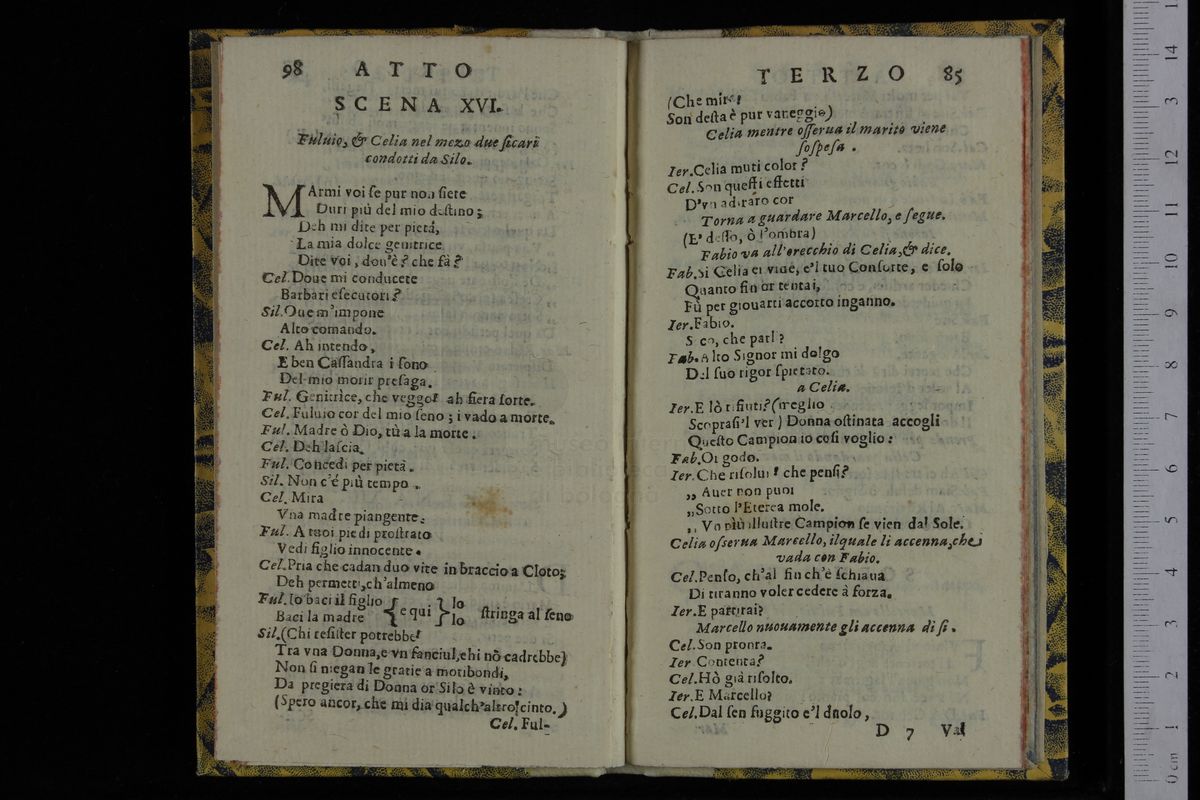 98 ATTO
SCENA XVI.
Fuluio, & Celia nel mezo due ſicari
condotti da Silo.
MArmi voi ſe pur non ſiete
Duri più del mio deſtino;
Deh mi dite per pietà,
La mia dolce genitrice
Dite voi, dou'è? che fà?
Cel. Doue mi conducete
Barbari eſecutori?
Sil. Oue m'impone
Alto comando.
Cel. Ah intendo,
E ben Caſſandra i ſono
Del mio morir preſaga.
Ful. Genitrice, che veggo? ah fiera ſorte.
Cel. Fuluio cor del mio ſeno; i vado a morte.
Ful. Madre ò Dio, tù a la morte.
Cel. Deh laſcia.
Ful. Concedi per pietà.
Sil. Non c'é più tempo.
Cel. Mira
Vna madre piangente.
Ful. A tuoi piedi proſtrato
Vedi figlio innocente.
Cel. Pria che cadan duo vite in braccio a Cloto;
Deh permetti, ch'almeno
Ful. Io baci il figlio { e qui } Io ſtringa al ſeno
Baci la madre Io
Sil. (Chi reſiſter potrebbe?
Tra vna Donna, e vn fanciul, chi nõ cadrebbe)
Non ſi niegan le gratie a moribondi,
Da pregiera di Donna or Silo è vinto:
(Spero ancor, che mi dia qualch'altro ſcinto.)
Cel. Ful-
TERZO 85
(Che miro!
Son deſta è pur vaneggio)
Celia mentre oſſerua il marito viene
ſoſpeſa.
Ier. Celia muti color?
Cel. Son queſti effetti
D'vn adirato cor
Torna a guardare Marcello, e ſegue.
(E' deſſo, ò l'ombra)
Fabio va all'orecchio di Celia, & dice.
Fab. Si Celia ei viue, e'l tuo Conſorte, e ſolo
Quanto fin or tentai,
Fù per giouarti accorto inganno.
Ier. Fabio.
Seco, che parl?
Fab. Alto Signor mi dolgo
Del ſuo rigor ſpietato.
a Celia.
Ier. E lò rifiuti? (meglio
Scopraſi'l ver) Donna oſtinata accogli
Queſto Campion io coſi voglio:
Fab. Oi godo.
Ier. Che riſolui? che penſi?
„ Auer non puoi
„ Sotto l'Eterea mole.
„ Vn più illuſtre Campion ſe vien dal Sole.
Celia oſſerua Marcello, ilquale li accenna, che
vada con Fabio.
Cel. Penſo, ch'al fin ch'è ſchiaua
Di tiranno voler cedere à forza.
Ier. E partirai?
Marcello nuouamente gli accenna di ſi.
Cel. Son pronta.
Ier. Contenta?
Cel. Hò già riſolto.
Ier. E Marcello?
Cel. Dal ſen fuggito e'l duolo,
D 7 Val